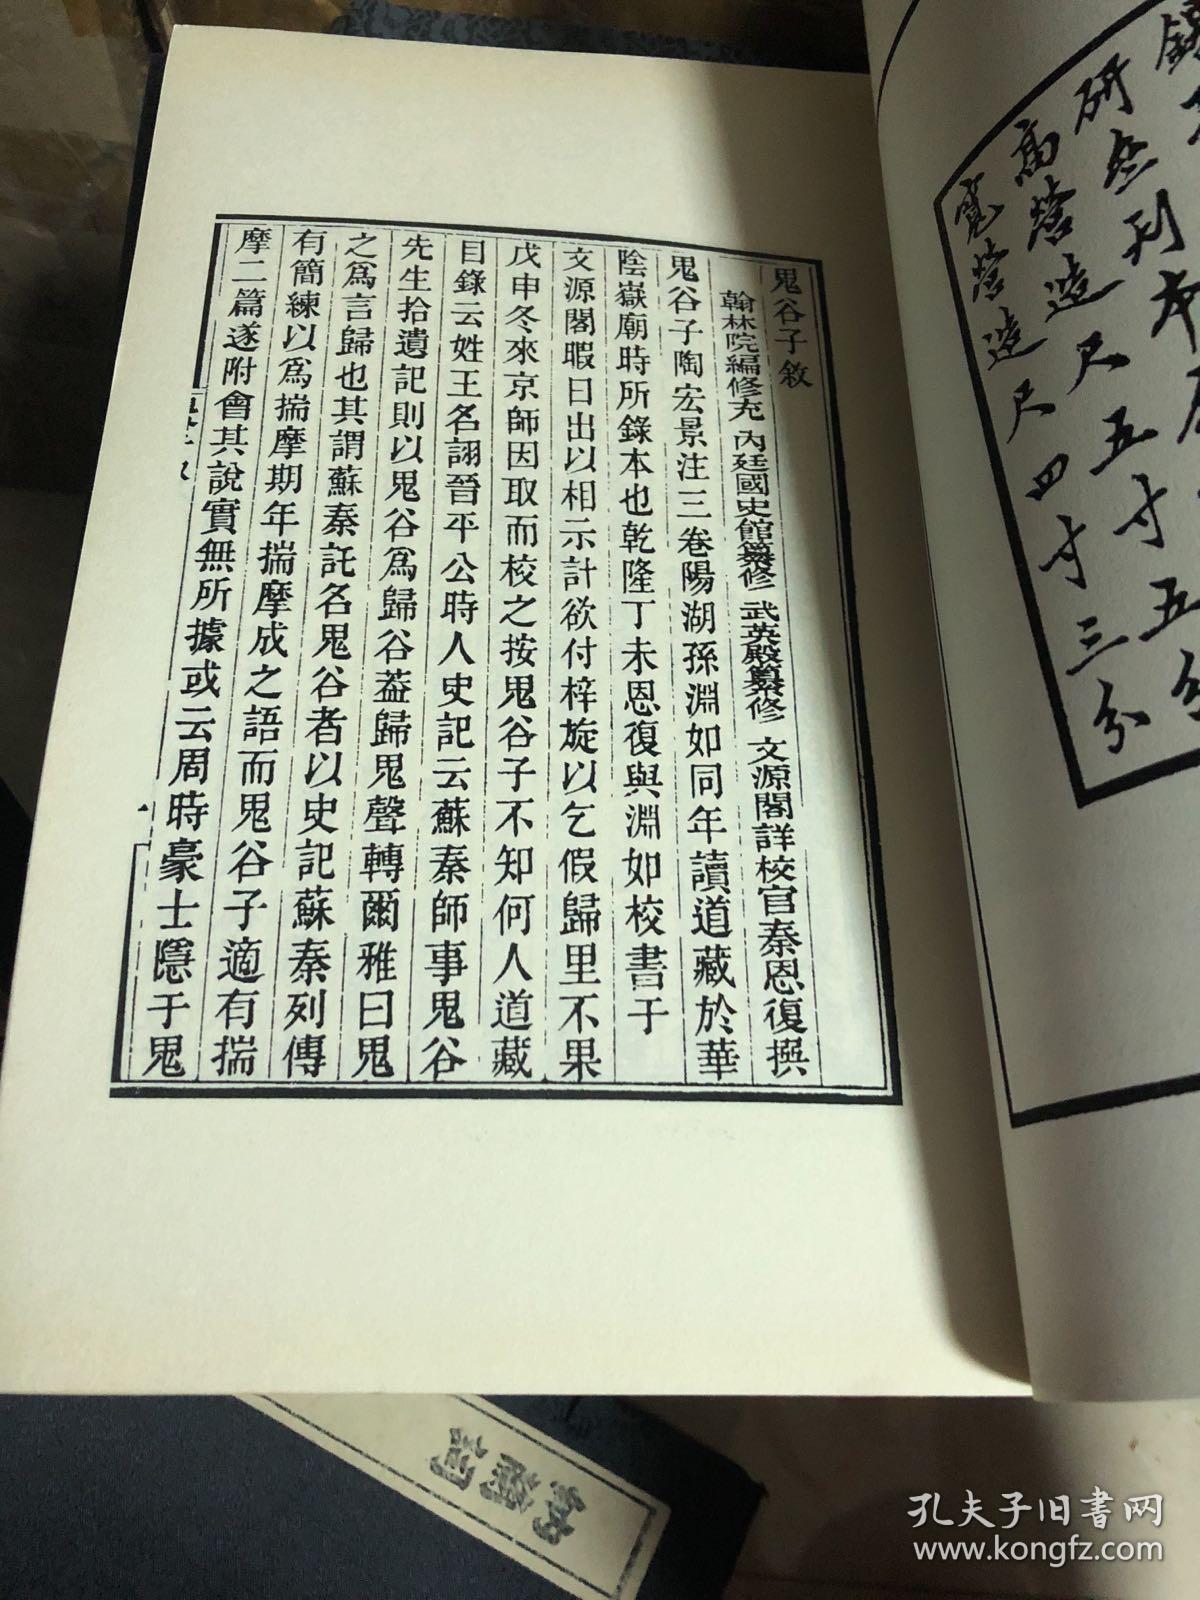 研經列本
高營造尺五寸五分
寬營造尺四寸三分
鬼谷子敘
翰林院編修充 內廷國史館纂修 武英殿纂修 文源閣詳校官秦恩復撰
鬼谷子陶宏景注三卷陽湖孫淵如同年讀道藏於華
陰嶽廟時所錄本也乾隆丁未恩復與淵如校書于
文源閣暇日出以相示計欲付梓旋以乞假歸里不果
戊申冬來京師因取而校之按鬼谷子不知何人道藏
目錄云姓王名詡晉平公時人史記云蘇秦師事鬼谷
先生拾遺記則以鬼谷爲歸谷葢歸鬼聲轉爾雅曰鬼
之爲言歸也其謂蘇秦託名鬼谷者以史記蘇秦列傳
有簡練以爲揣摩期年揣摩成之語而鬼谷子適有揣
摩二篇遂附會其說實無所據或云周時豪士隱于鬼
一
孔夫子旧书网
www.kongfz.com